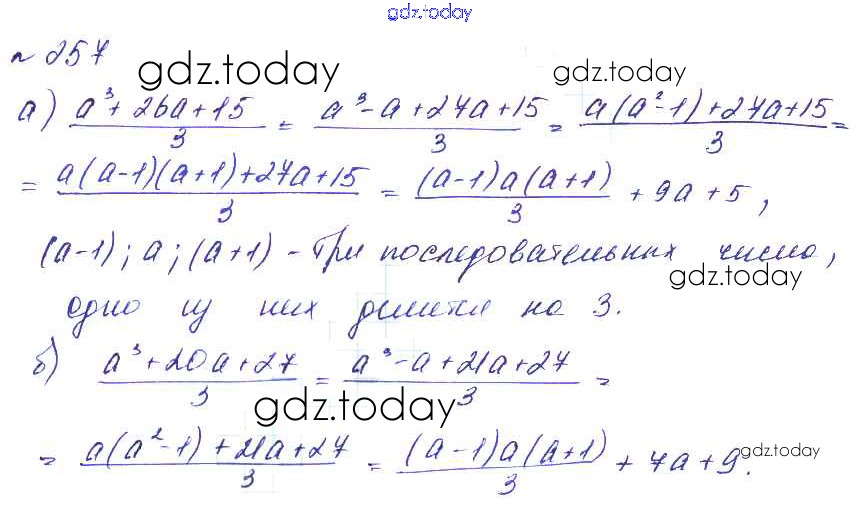 gdz.today
№ 257
gdz.today gdz.today
а) (a³ + 26a + 15)/3 = (a³ - a + 27a + 15)/3 = (a(a² - 1) + 27a + 15)/3 =
= (a(a-1)(a+1) + 27a + 15)/3 = ((a-1)a(a+1))/3 + 9a + 5,
(a-1); a; (a+1) - три последовательных числа,
gdz.today
одно из них делится на 3.
б) (a³ + 20a + 27)/3 = (a³ - a + 21a + 27)/3 =
gdz.today
= (a(a² - 1) + 21a + 27)/3 = ((a-1)a(a+1))/3 + 7a + 9.
gdz.today